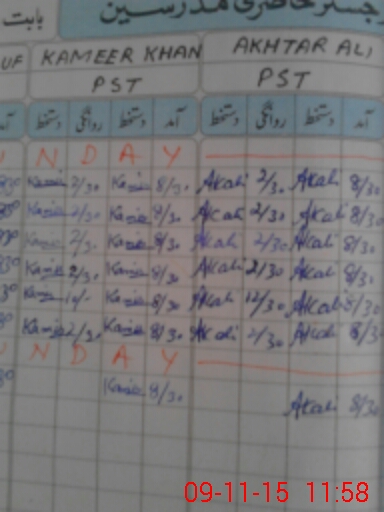 رجسٹر حاضری مدرسین بابت
UF KAMEER KHAN AKHTAR ALI
PST PST
دستخط روانگی دستخط آمد دستخط روانگی دستخط آمد
N D A Y
Kamir 2/30 Kamir 8/30 Akali 2/30 Akali 8/30
Kamir 2/30 Kamir 8/30 Akali 2/30 Akali 8/30
Kamir 2/30 Kamir 8/30 Akali 2/30 Akali 8/30
Kamir 2/30 Kamir 8/30 Akali 2/30 Akali 8/30
Kamir Kamir 8/30 Akali 12/30 Akali 8/30
Kamir 2/30 Kamir 8/30 Akali 2/30 Akali 8/30
N D A Y
Kamir 8/30 Akali 8/30
09-11-15 11:58